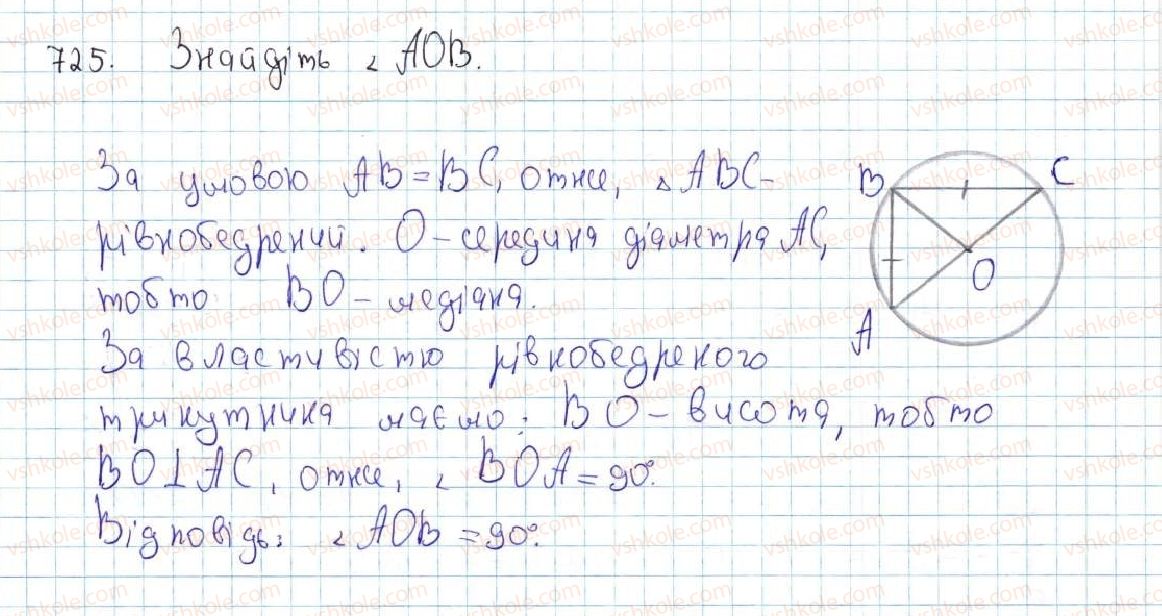 725. Знайдіть ∠ AOB.
За умовою AB = BC, отже, △ ABC -
рівнобедрений. O - середина діаметра AC,
тобто BO - медіана.
За властивістю рівнобедреного
трикутника маємо: BO - висота, тобто
BO ⊥ AC, отже, ∠ BOA = 90°.
Відповідь: ∠ AOB = 90°.
B
C
O
A
vshkole.com